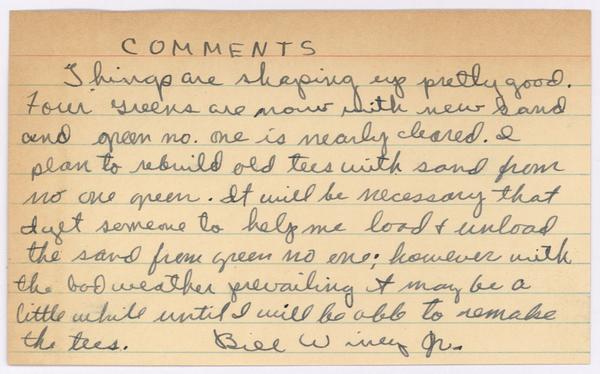 COMMENTS
Things are shaping up pretty good.
Four greens are now with new sand
and green no. one is nearly cleared. I
plan to rebuild old tees with sand from
no one green. It will be necessary that
I get someone to help me load & unload
the sand from green no one; however with
the bad weather prevailing it may be a
little while until I will be able to remake
the tees. Bill Winey Jr.